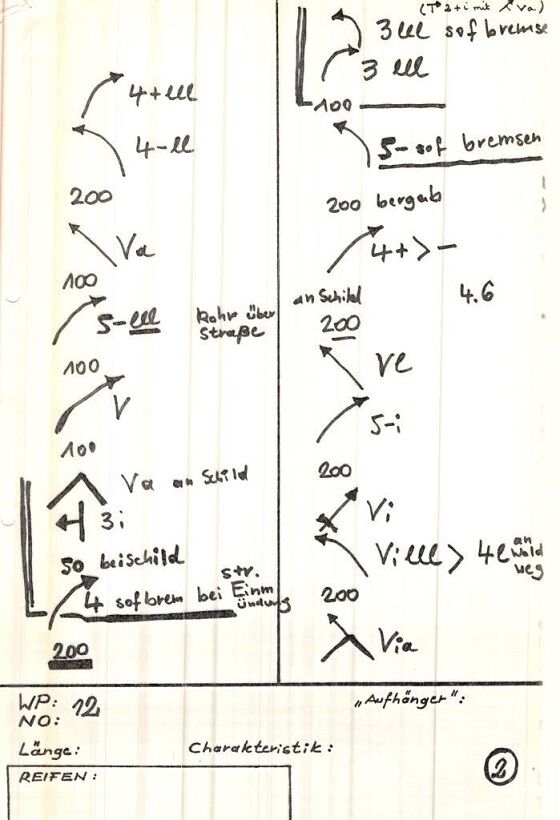 4+lll
4-ll
200
Va
100
5-lll Rohr über
Straße
100
V
100
Va an Schild
3i
50 beischild
4 sofbrem bei Str.
Einm
ündung
200
(T 2+i mit Va)
3lll sof bremse
3 lll
100
5-sof bremsen
200 bergab
4+>-
an Schild 4.6
200
Vl
5-i
200
Vi
Villl > 4l an
Wald
weg
200
Via
WP: 12
NO:
„Aufhänger“:
Länge: Charakteristik:
2
REIFEN: